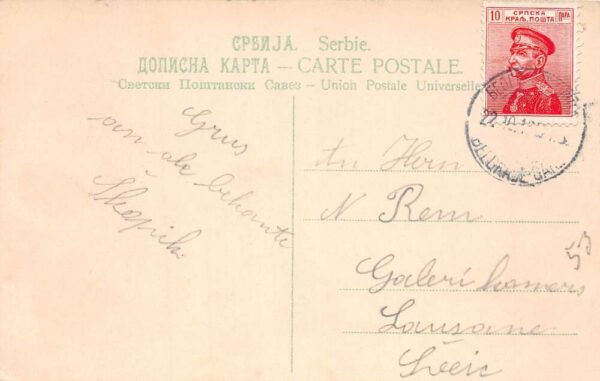 СРБИЈА. Serbie.
ДОПИСНА КАРТА — CARTE POSTALE.
Светски Поштански Савез — Union Postale Universelle
10 СРПСКА ПАРА
КРАЉ. ПОШТА
Grus
an ale bekante
An Hern
N Rem
Galeri
Lausane
53